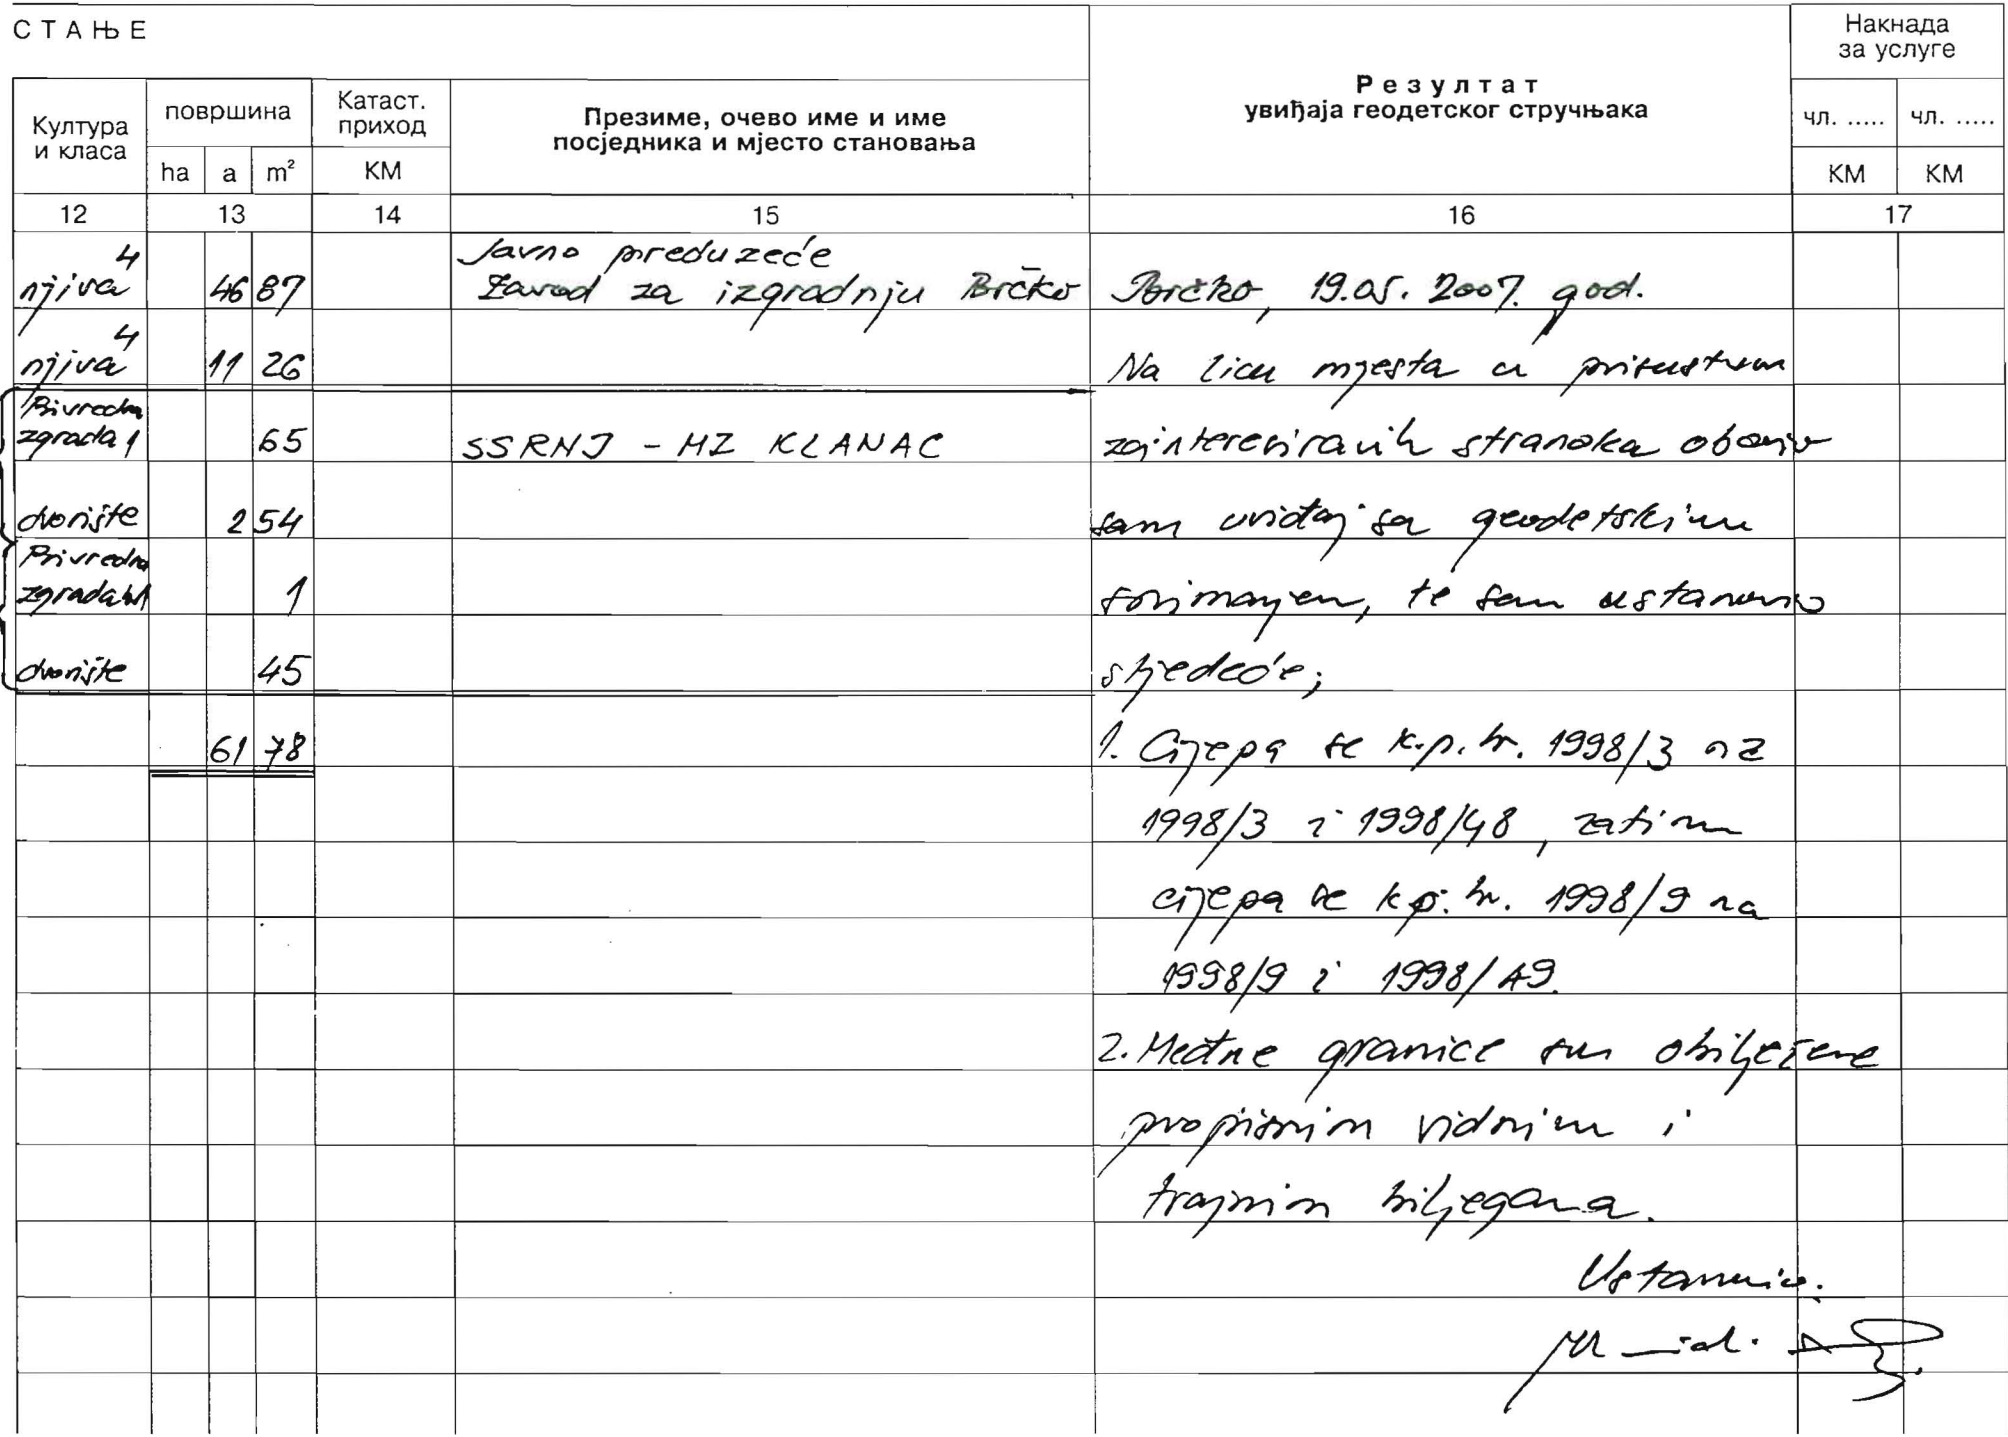 СТАЊЕ
Култура и класа
површина
ha a m²
Катаст. приход
КМ
Презиме, очево име и име
посједника и мјесто становања
Резултат
увиђаја геодетског стручњака
Накнада
за услуге
чл. ..... чл. .....
КМ КМ
12 13 14 15 16 17
Javno preduzeće
njiva 4 46 87 Zavod za izgradnju Brčko Brčko, 19.05.2007. god.
njiva 4 11 26 Na licu mjesta u prisustvu
Privredna
zgrada 1 65 SSRNJ - MZ KLANAC zainteresiranih stranaka obavio
dvorište 2 54 sam uviđaj sa geodetskim
Privredna
zgrada 1 snimanjem, te sam ustanovio
dvorište 45 sljedeće;
61 78 1. Cijepa se k.p.br. 1998/3 na
1998/3 i 1998/48, zatim
cijepa se k.p.br. 1998/9 na
1998/9 i 1998/49.
2. Međne granice su obilježene
propisnim vidnim i
trajnim biljegama.
Ustanovio: